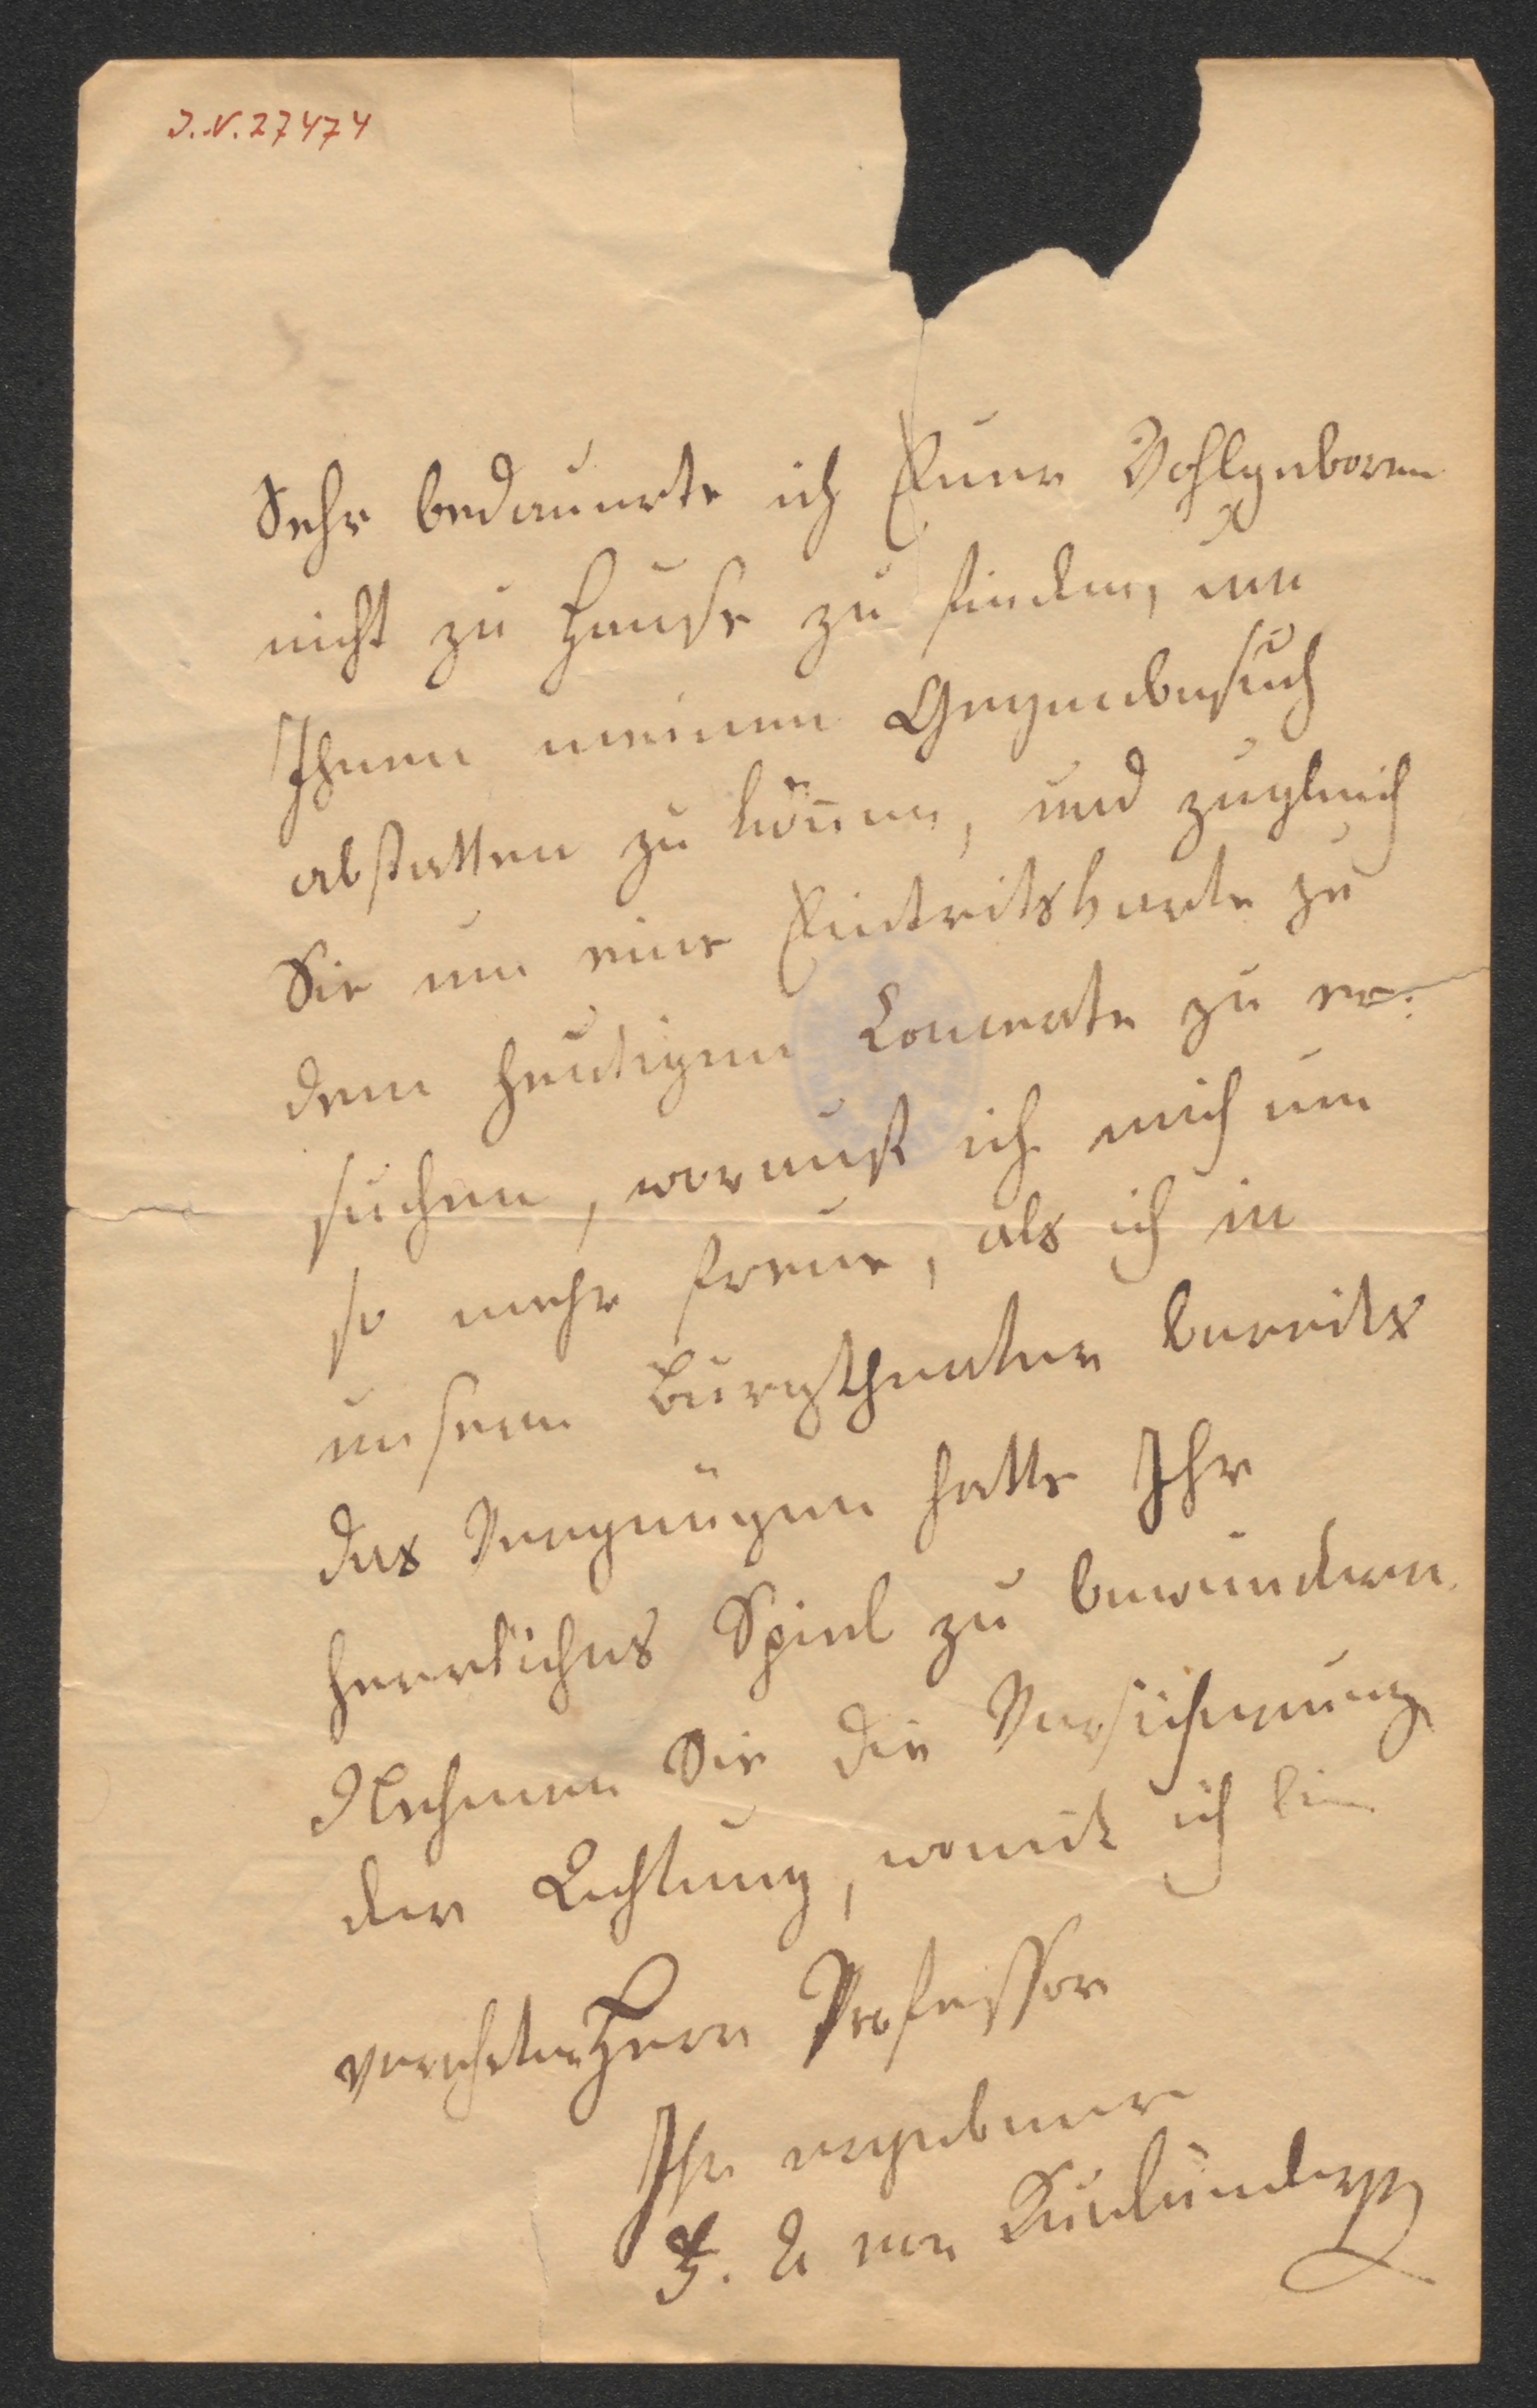 J.N. 27474
Sehr bedauerte ich Euer Wohlgeboren
nicht zu Hause zu finden, um
Ihnen meinen Gegenbesuch
abstatten zu können, und zugleich
Sie um eine Eintritskarte zu
dem heutigen Concerte zu er:
suchen, worauf ich mich um
so mehr freue, als ich in
unserm Burgtheater bereits
das Vergnügen hatte Ihr
herrliches Spiel zu bewundern.
Nehmen Sie die Versicherung
der Achtung, womit ich bin
verehrter Herr Professor
Ihr ergebener
F. A von Kurländer